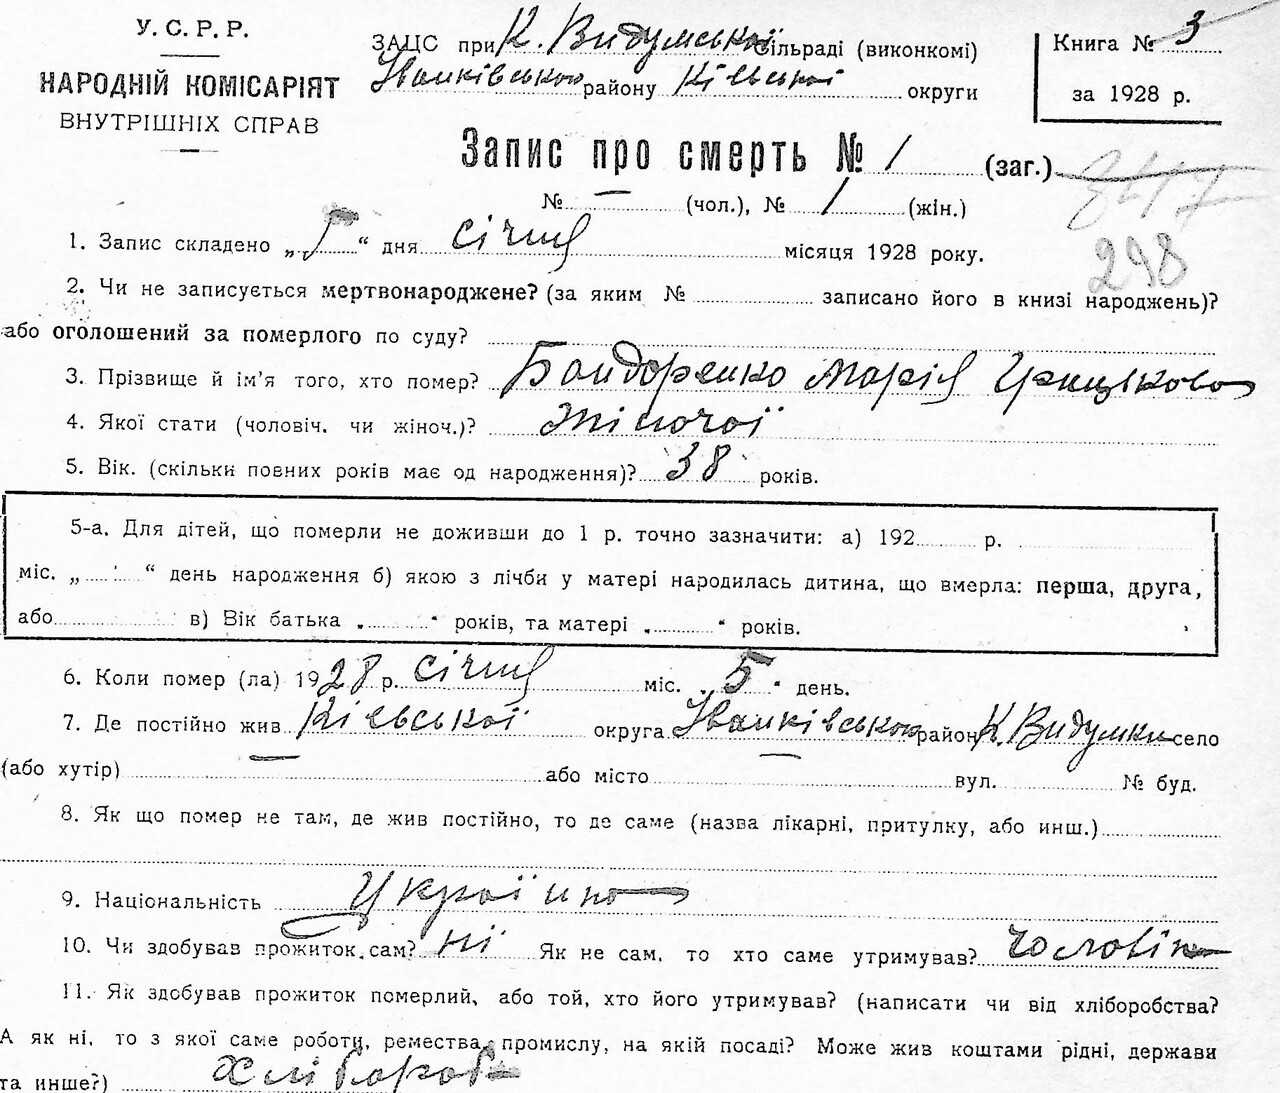 У. С. Р. Р.
НАРОДНІЙ КОМІСАРІЯТ
ВНУТРІШНІХ СПРАВ
ЗАЦС при К. Видумської сільраді (виконкомі)
Іванківського району Київської округи
Книга № 3
за 1928 р.
Запис про смерть № 1 (заг.)
№ — (чол.), № 1 (жін.)
298
1. Запис складено „ “ дня січня місяця 1928 року.
2. Чи не записується мертвонароджене? (за яким № записано його в книзі народжень)?
або оголошений за померлого по суду?
3. Прізвище й ім’я того, хто помер? Бондоренко Марія Грицькова
4. Якої стати (чоловіч. чи жіноч.)? жіночої
5. Вік. (скільки повних років має од народження)? 38 років.
5-а. Для дітей, що померли не доживши до 1 р. точно зазначити: а) 192 р.
міс. „ “ день народження б) якою з лічби у матері народилась дитина, що вмерла: перша, друга,
або в) Вік батька „ “ років, та матері „ “ років.
6. Коли помер (ла) 1928 р. січня міс. 5 “ день.
7. Де постійно жив Київської округа Іванківського район К. Видумка село
(або хутір) — або місто — вул. № буд.
8. Як що помер не там, де жив постійно, то де саме (назва лікарні, притулку, або инш.)
9. Національність Україн
10. Чи здобував прожиток сам? ні Як не сам, то хто саме утримував? чоловік
11. Як здобував прожиток померлий, або той, хто його утримував? (написати чи від хліборобства?
А як ні, то з якої саме роботи, ремества, промислу, на якій посаді? Може жив коштами рідні, держави
та инше?) Хлібороб